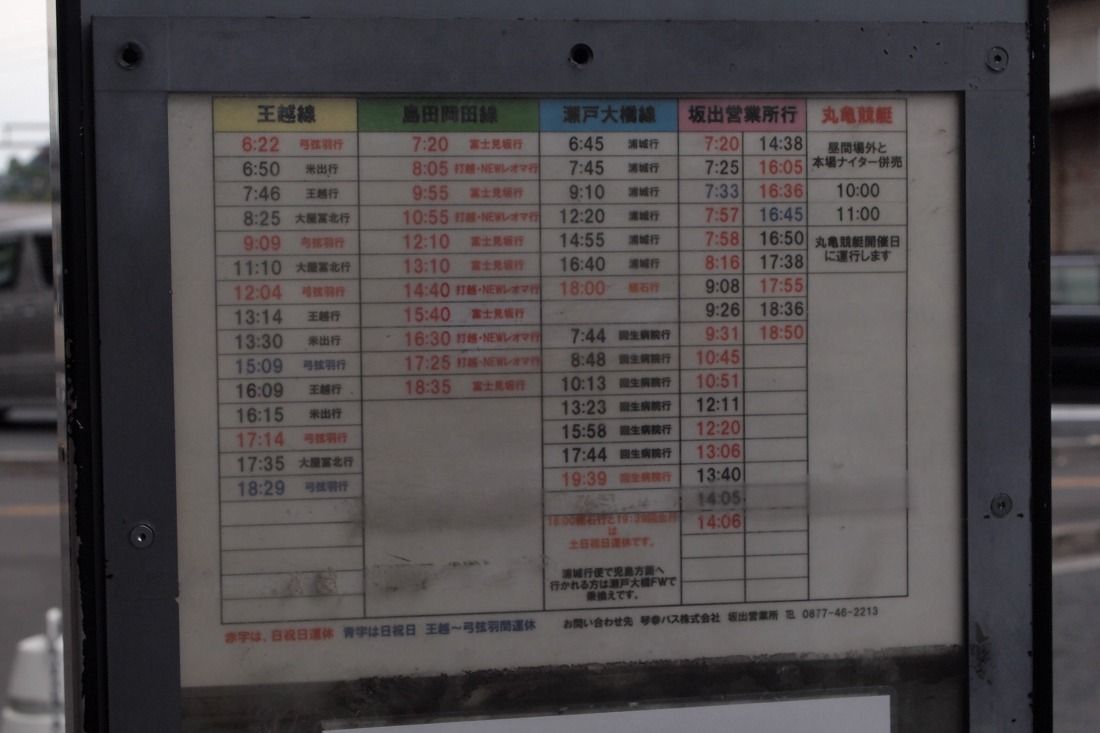 王越線 島田岡田線 瀬戸大橋線 坂出営業所行 丸亀競艇
6:22 弓弦羽行 7:20 富士見坂行 6:45 浦城行 7:20 14:38 昼間場外と
6:50 米出行 8:05 打越・NEWレオマ行 7:45 浦城行 7:25 16:05 本場ナイター併売
7:46 王越行 9:55 富士見坂行 9:10 浦城行 7:33 16:36 10:00
8:25 大屋冨北行 10:55 打越・NEWレオマ行 12:20 浦城行 7:57 16:45 11:00
9:09 弓弦羽行 12:10 富士見坂行 14:55 浦城行 7:58 16:50 丸亀競艇開催日
11:10 大屋冨北行 13:10 富士見坂行 16:40 浦城行 8:16 17:38 に運行します
12:04 弓弦羽行 14:40 打越・NEWレオマ行 18:00 9:08 17:55
13:14 王越行 15:40 富士見坂行 9:26 18:36
13:30 米出行 16:30 打越・NEWレオマ行 7:44 回生病院行 9:31 18:50
15:09 弓弦羽行 17:25 打越・NEWレオマ行 8:48 回生病院行 10:45
16:09 王越行 18:35 富士見坂行 10:13 回生病院行 10:51
16:15 米出行 13:23 回生病院行 12:11
17:14 弓弦羽行 15:58 回生病院行 12:20
17:35 大屋冨北行 17:44 回生病院行 13:06
18:29 弓弦羽行 19:39 回生病院行 13:40
14:05
14:06
は
土日祝日運休です。
浦城行便で児島方面へ
行かれる方は瀬戸大橋FWで
乗換えです。
赤字は、日祝日運休 青字は日祝日 王越～弓弦羽間運休 お問い合わせ先 琴参バス株式会社 坂出営業所 ℡ 0877-46-2213